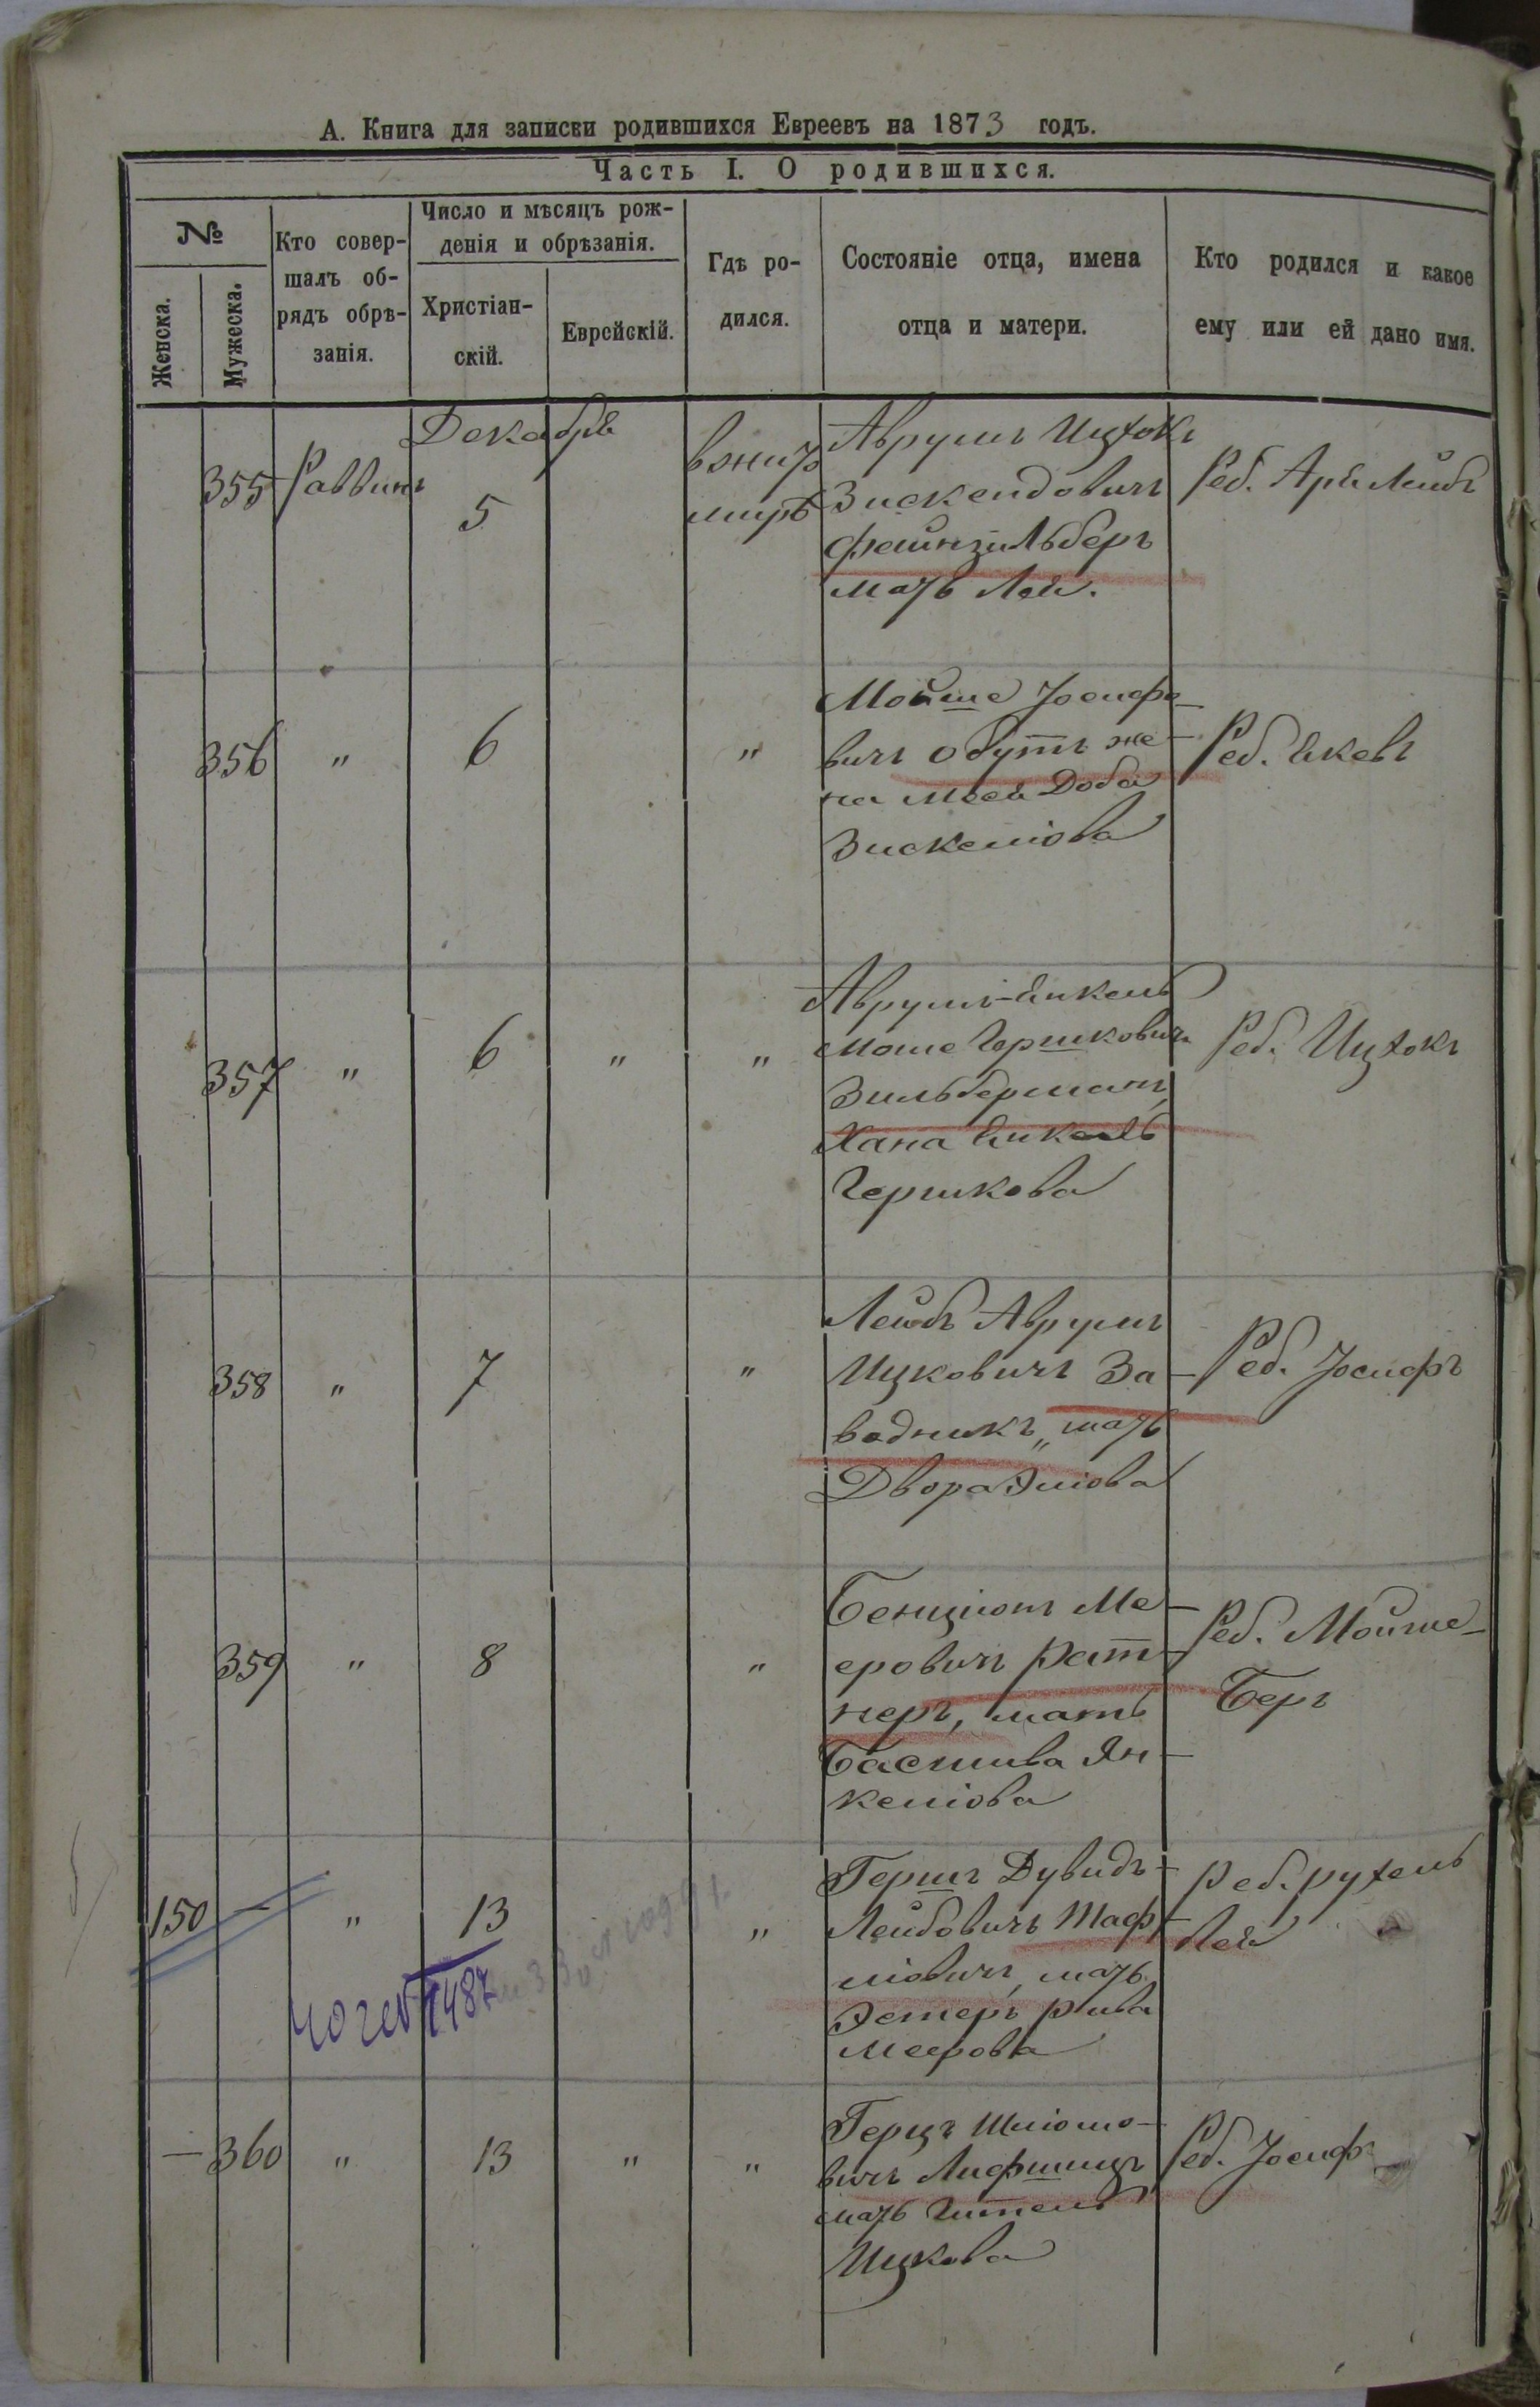 А. Книга для записки родившихся Евреевъ на 1873 годъ.
Часть I. О родившихся.
№
Женска.
Мужеска.
Кто совер-
шалъ об-
рядъ обрѣ-
занія.
Число и мѣсяцъ рож-
денія и обрѣзанія.
Христіан-
скій.
Еврейскій.
Гдѣ ро-
дился.
Состояніе отца, имена
отца и матери.
Кто родился и какое
ему или ей дано имя.
Декабря
355 Раввинъ 5
вжит
мирѣ
Аврумъ Ицхокъ
Зискендовичъ
Фейнзильберъ
мать Лея.
Реб. Арья Лейбъ
356 " 6 "
Мойше Іосифо-
вичъ Обутъ же-
на моея Доба
Зискеліова
Реб. Якевъ
357 " 6 " "
Аврумъ-Янкель
Моше Гершковичъ
Зильберманъ,
Хана Янкель
Гершкова
Реб. Ицхокъ
358 " 7 "
Лейбъ Аврумъ
Ицковичъ За-
водникъ, мать
Двора Эліова
Реб. Іосифъ
359 " 8 "
Бенціонъ Ме-
еровичъ Рат-
неръ, мать
Басшива Ян-
келіова
Реб. Мойше-
Беръ
150 — " 13 "
Гершъ Дувидъ-
Лейбовичъ Таф-
ліовичъ, мать
Эстеръ Рива
Меерова
Реб. Рухель
Лея
1487
— 360 " 13 " "
Герцъ Шліомо-
вичъ Лифшицъ
мать Гитель
Ицкова
Реб. Іосифъ